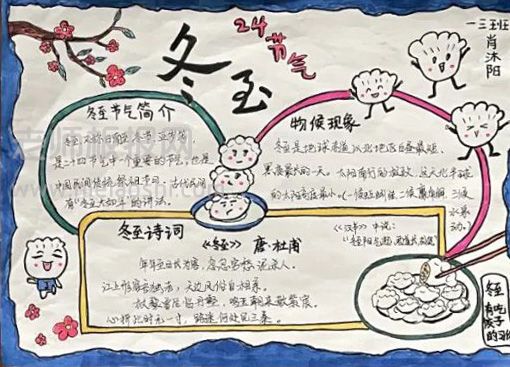 24节气
一三班
肖沐阳
冬至
冬至节气简介
冬至又称日南至、冬节、亚岁等
是二十四节气中一个重要的节气,也是
中国民间传统祭祖节日。古代民间
有"冬至大如年"的讲法。
物候现象
冬至是地球赤道以北地区白昼最短、
黑夜最长的一天。
三候
水泉
动。)
冬至诗词
《冬至》 唐·杜甫
年年至日长为客,忽忽穷愁泥杀人。
江上形容吾独老,天边风俗自相亲。
杖藜雪后临丹壑,鸣玉朝来散紫宸。
心折此时无一寸,路迷何处见三秦。
《汉书》中说:
冬至
有吃
饺子
的习